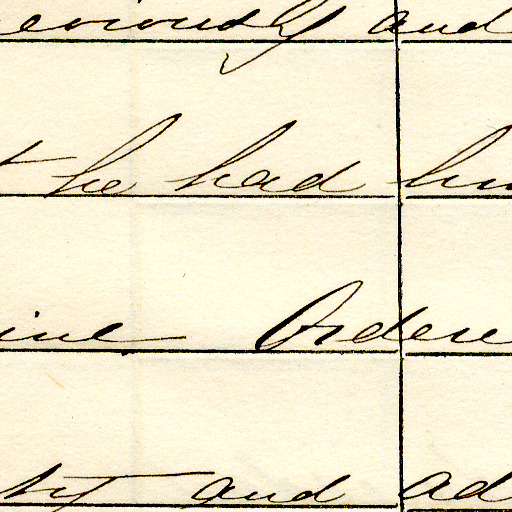 eviously and
he had
ine Ordere
and ad